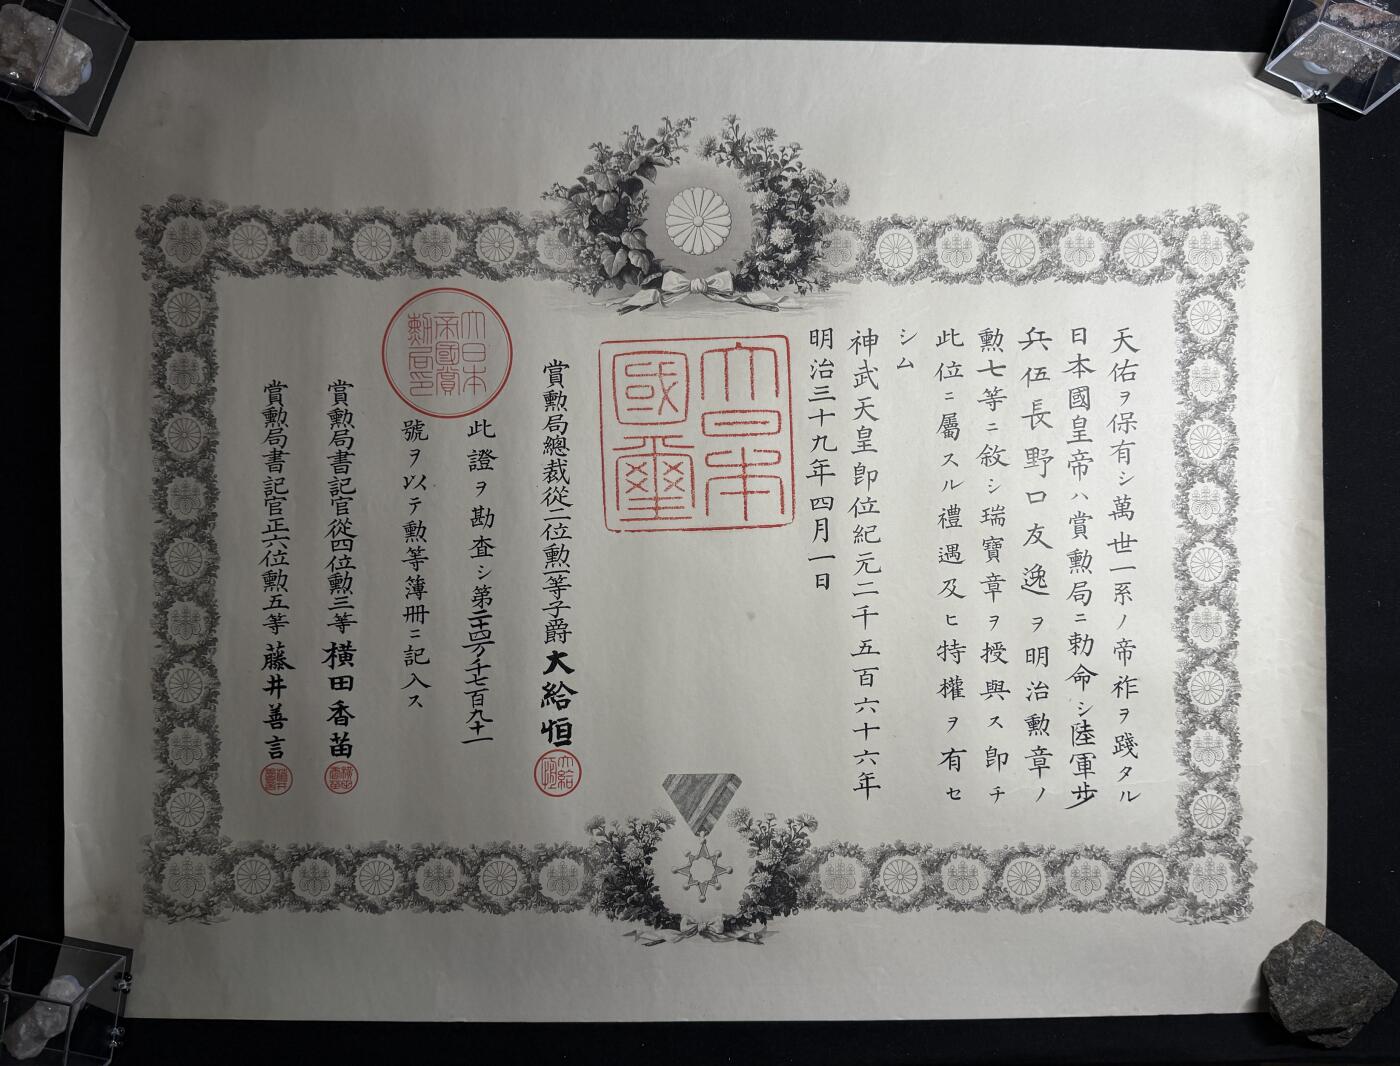 天佑ヲ保有シ萬世一系ノ帝祚ヲ踐タル
日本國皇帝ハ賞勲局ニ勅命シ陸軍歩
兵伍長野口友逸ヲ明治勲章ノ
勲七等ニ敘シ瑞寶章ヲ授與ス卽チ
此位ニ屬スル禮遇及ヒ特權ヲ有セ
シム
神武天皇卽位紀元二千五百六十六年
明治三十九年四月一日
大日本
國璽
賞勲局總裁從二位勲一等子爵大給恒
大給恒
此證ヲ勘査シ第二十四万千七百九十一
號ヲ以テ勲等簿冊ニ記入ス
大日本
帝國賞
勲局印
賞勲局書記官從四位勲三等橫田香苗
賞勲局書記官正六位勲五等藤井善言